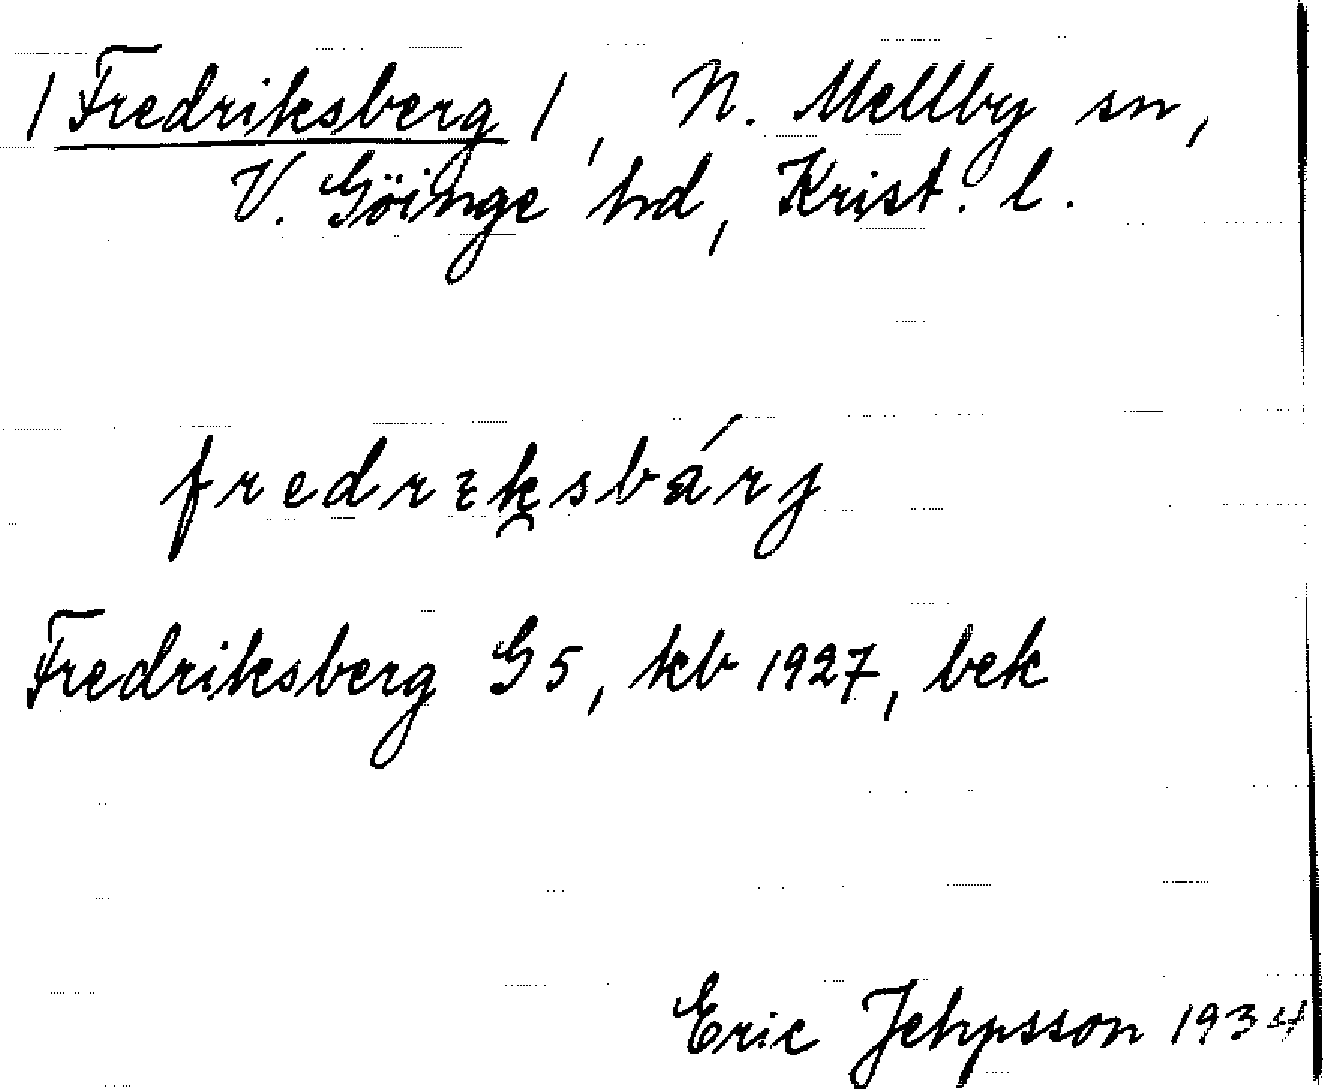 /Fredriksberg/, N. Mellby sn,
V. Göinge hd, Krist. l.
fredrɪk̯sbárj
Fredriksberg G5, kb 1927, bek
Eric Jehpsson 1934